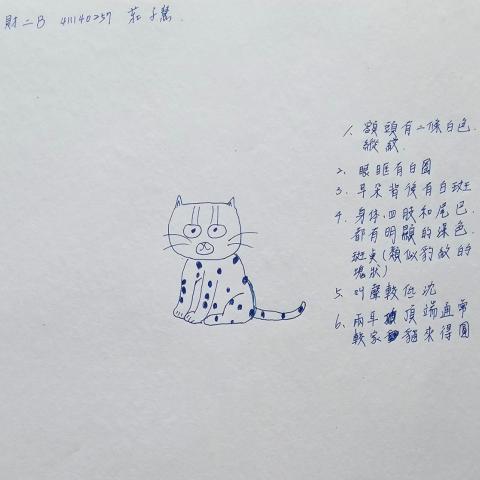 財二B 411140257 莊子慧.
1. 額頭有二條白色
縱紋.
2. 眼眶有白圈
3. 耳朵背後有白斑
4. 身体、四肢和尾巴
都有明顯的深色
斑点(類似豹紋的
塊狀)
5. 叫聲較低沈
6. 兩耳頂端通常
較家貓來得圓